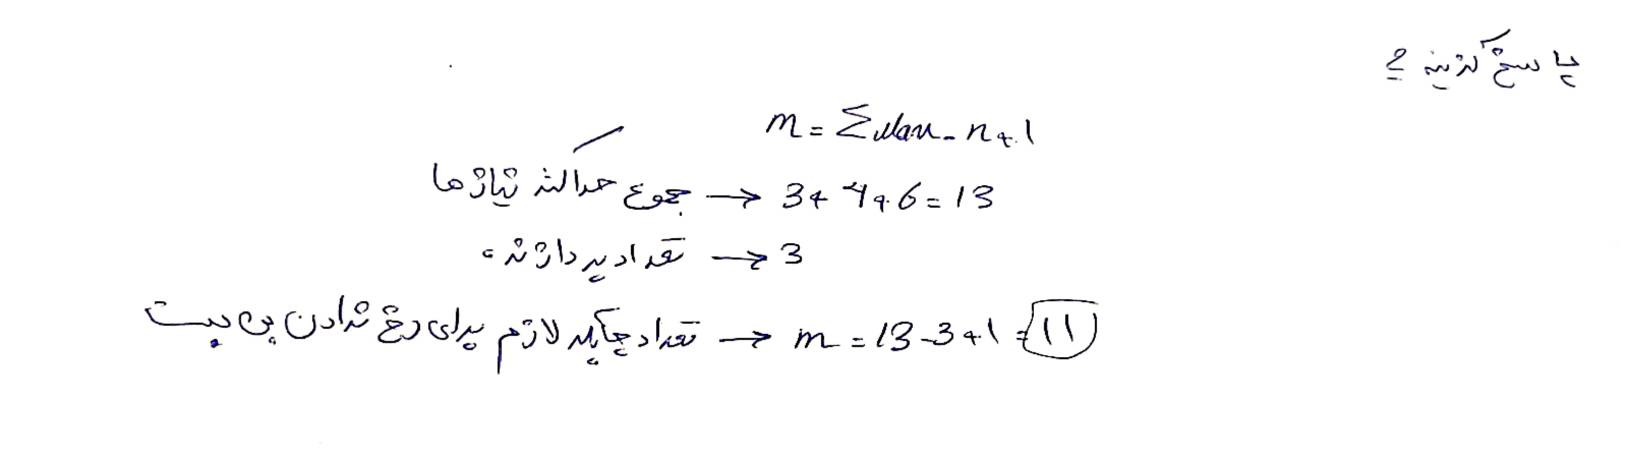 پاسخ گزینه 2
m = Σ Max - n + 1
مجموع حداکثر نیازها → 3 + 4 + 6 = 13
تعداد پردازنده → 3
تعداد چاپگر لازم برای رخ ندادن بن بست → m = 13 - 3 + 1 = 11